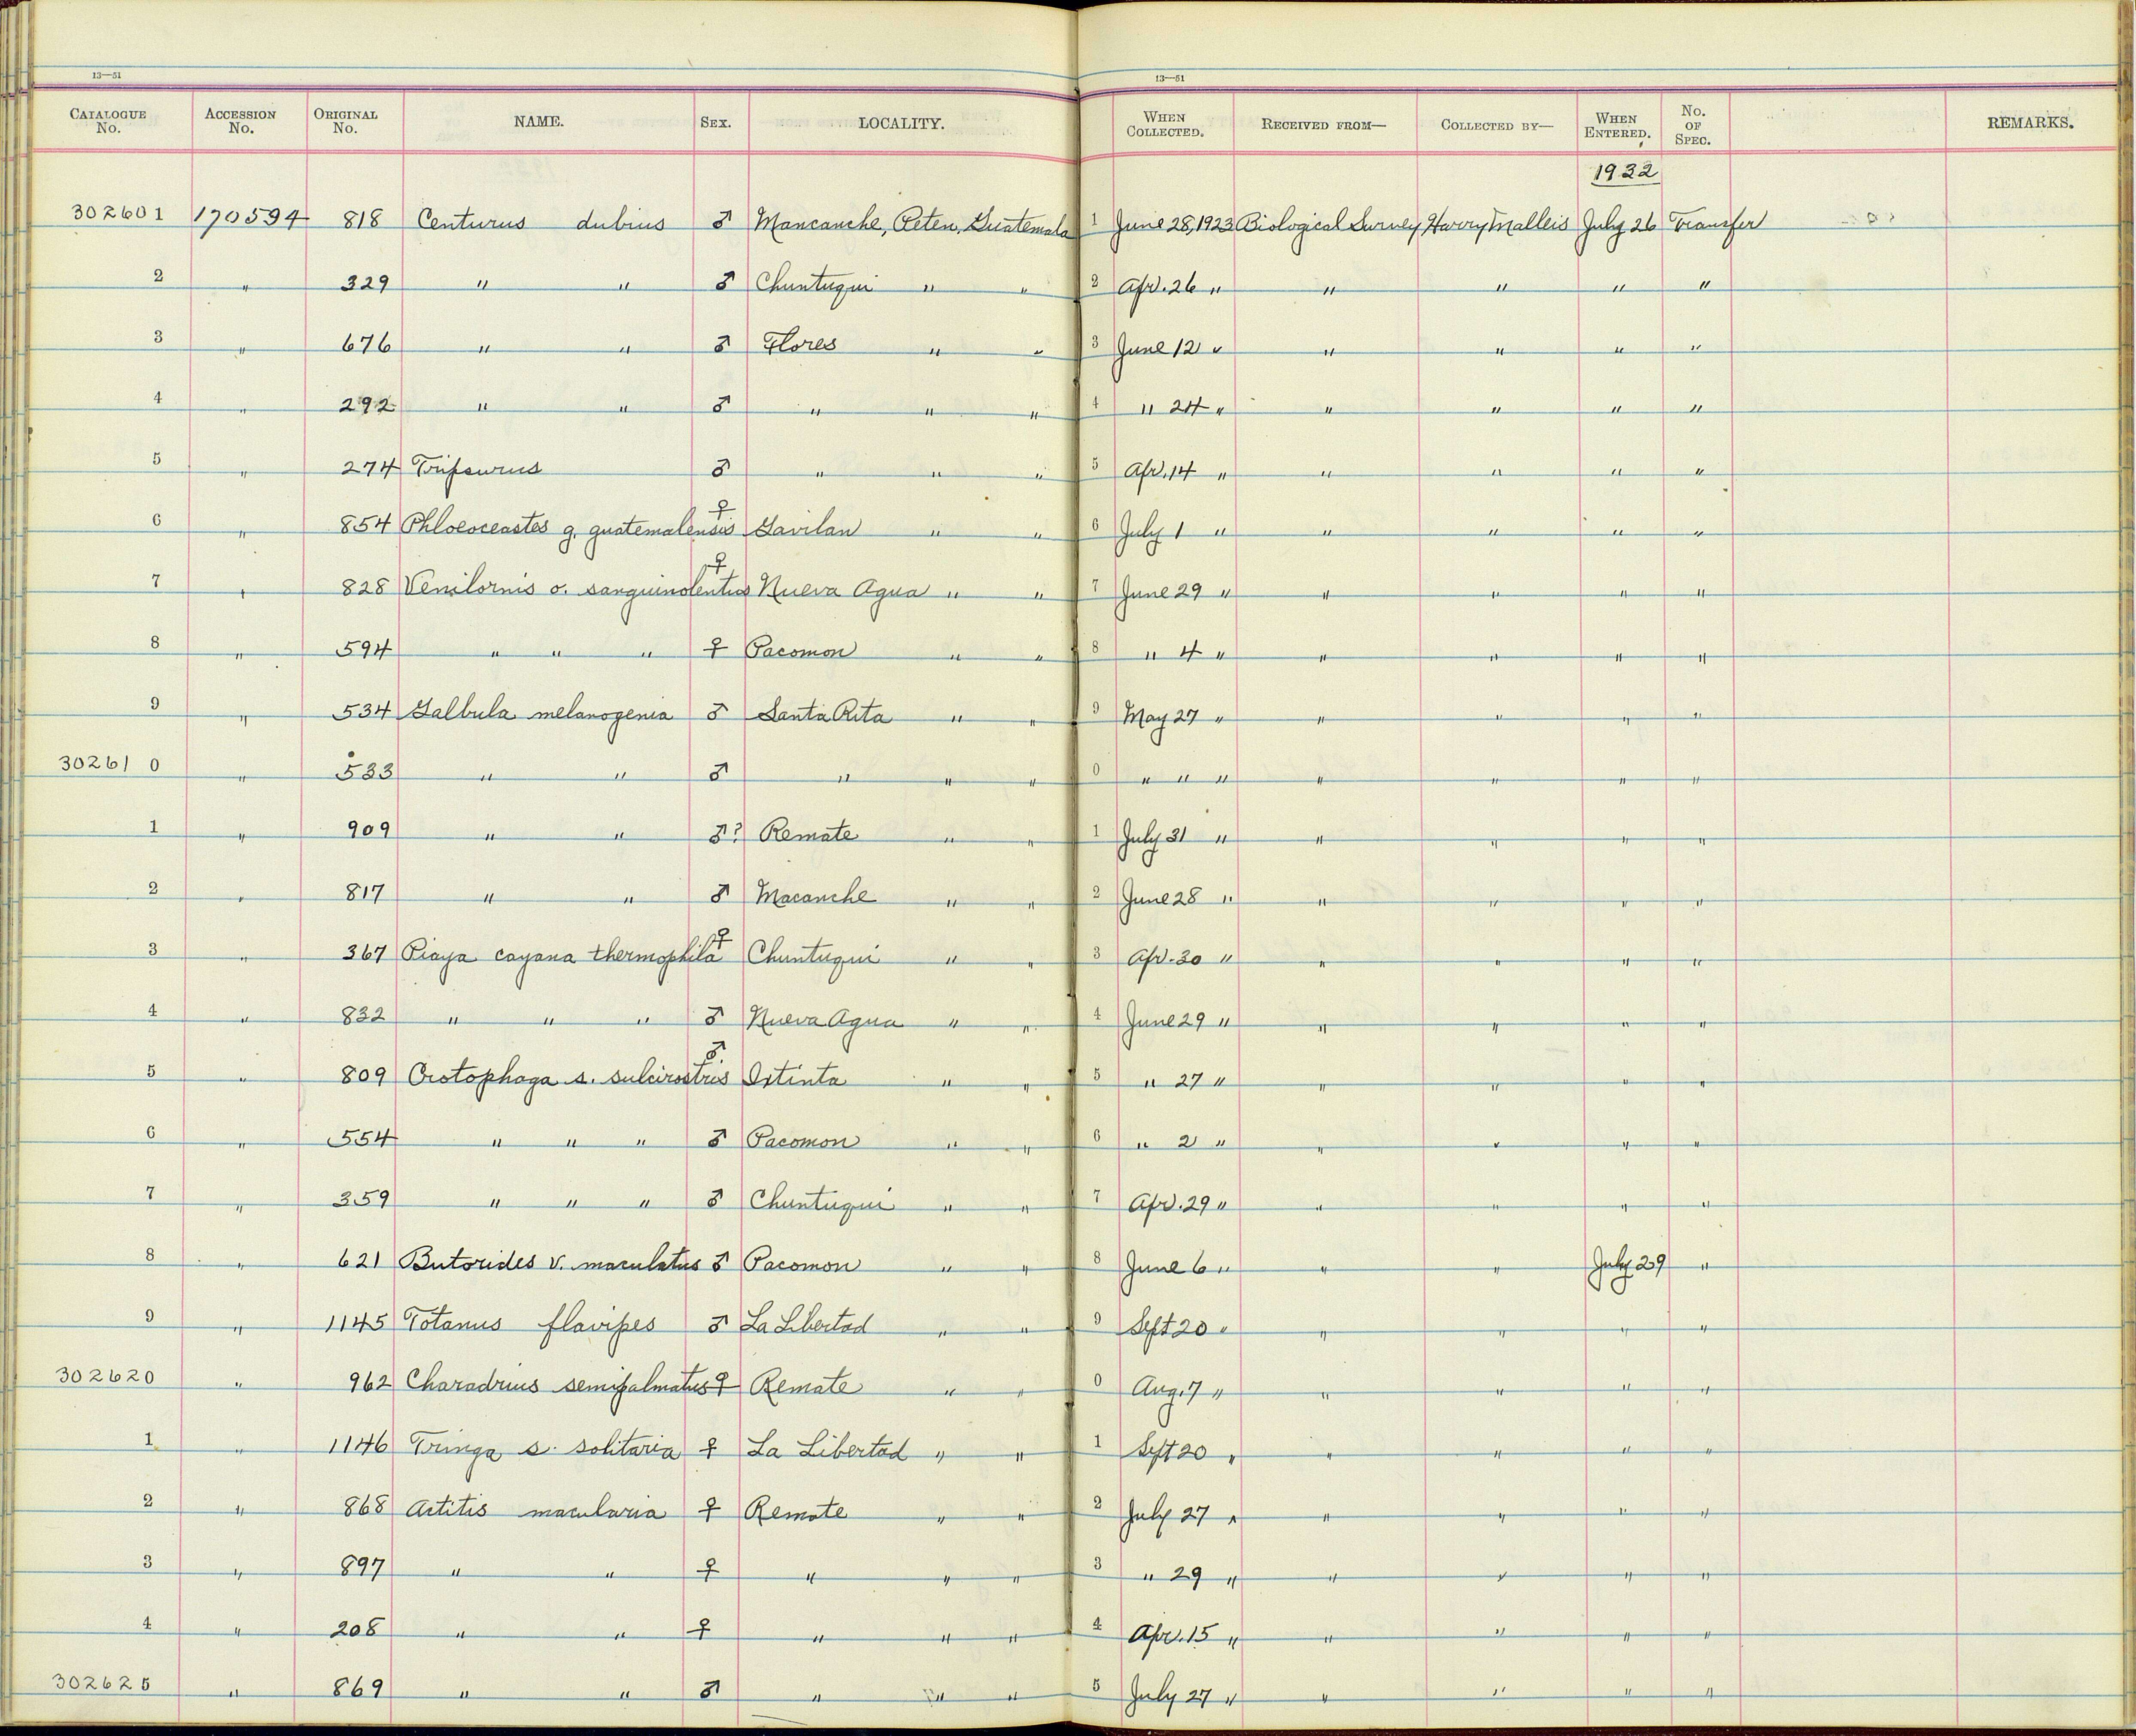 13—51 13—51
CATALOGUE No. ACCESSION No. ORIGINAL No. NAME. SEX. LOCALITY. WHEN COLLECTED. RECEIVED FROM— COLLECTED BY— WHEN ENTERED. No. OF SPEC. REMARKS.
1932
302601 170594 818 Centurus dubius ♂ Mancanche, Peten, Guatemala 1 June 28, 1923 Biological Survey Harry Malleis July 26 Transfer
2 " 329 " " ♂ Chuntuqui " " 2 Apr. 26 " " " " "
3 " 676 " " ♂ Flores " " 3 June 12 " " " " "
4 " 292 " " ♂ " " " 4 " 24 " " " " "
5 " 274 Tripsurus ♂ " " " 5 Apr. 14 " " " " "
6 " 854 Phloeoceastes g. guatemalensis ♀ Gavilan " " 6 July 1 " " " " "
7 " 828 Venilornis o. sanguinolentus ♀ Nueva Agua " " 7 June 29 " " " " "
8 " 594 " " " ♀ Pacomon " " 8 " 4 " " " " "
9 " 534 Galbula melanogenia ♂ Santa Rita " " 9 May 27 " " " " "
302610 " 533 " " ♂ " " " 0 " " " " " " "
1 " 909 " " ♂? Remate " " 1 July 31 " " " " "
2 " 817 " " ♂ Macanche " " 2 June 28 " " " " "
3 " 367 Piaya cayana thermophila ♀ Chuntuqui " " 3 Apr. 30 " " " " "
4 " 832 " " " ♂ Nueva Agua " " 4 June 29 " " " " "
5 " 809 Crotophaga s. sulcirostris ♂ Ixtinta " " 5 " 27 " " " " "
6 " 554 " " " ♂ Pacomon " " 6 " 2 " " " " "
7 " 359 " " " ♂ Chuntuqui " " 7 Apr. 29 " " " " "
8 " 621 Butorides v. maculatus ♂ Pacomon " " 8 June 6 " " " July 29 "
9 " 1145 Totanus flavipes ♂ La Libertad " " 9 Sept 20 " " " " "
302620 " 962 Charadrius semipalmatus ♀ Remate " " 0 Aug. 7 " " " " "
1 " 1146 Tringa s. solitaria ♀ La Libertad " " 1 Sept 20 " " " " "
2 " 868 Actitis macularia ♀ Remate " " 2 July 27 " " " " "
3 " 897 " " ♀ " " " 3 " 29 " " " " "
4 " 208 " " ♀ " " " 4 Apr. 15 " " " " "
302625 " 869 " " ♂ " " " 5 July 27 " " " " "